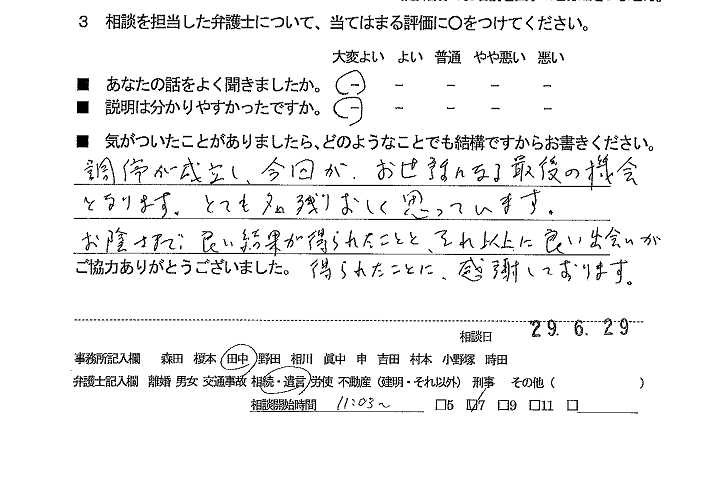 3 相談を担当した弁護士について、当てはまる評価に○をつけてください。
大変よい よい 普通 やや悪い 悪い
■ あなたの話をよく聞きましたか。 － － － － －
■ 説明は分かりやすかったですか。 － － － － －
■ 気がついたことがありましたら、どのようなことでも結構ですからお書きください。
調停が成立し、今回が、お世話になる最後の機会
となります。とても名残りおしく思っています。
お陰さまで良い結果が得られたことと、それ以上に良い出会いが
ご協力ありがとうございました。 得られたことに、感謝しております。
相談日 29.6.29
事務所記入欄 森田 榎本 田中 野田 相川 眞中 申 吉田 村本 小野塚 時田
弁護士記入欄 離婚 男女 交通事故 相続・遺言 労使 不動産（建明・それ以外） 刑事 その他（ ）
相談開始時間 11:03～ □5 □7 □9 □11 □